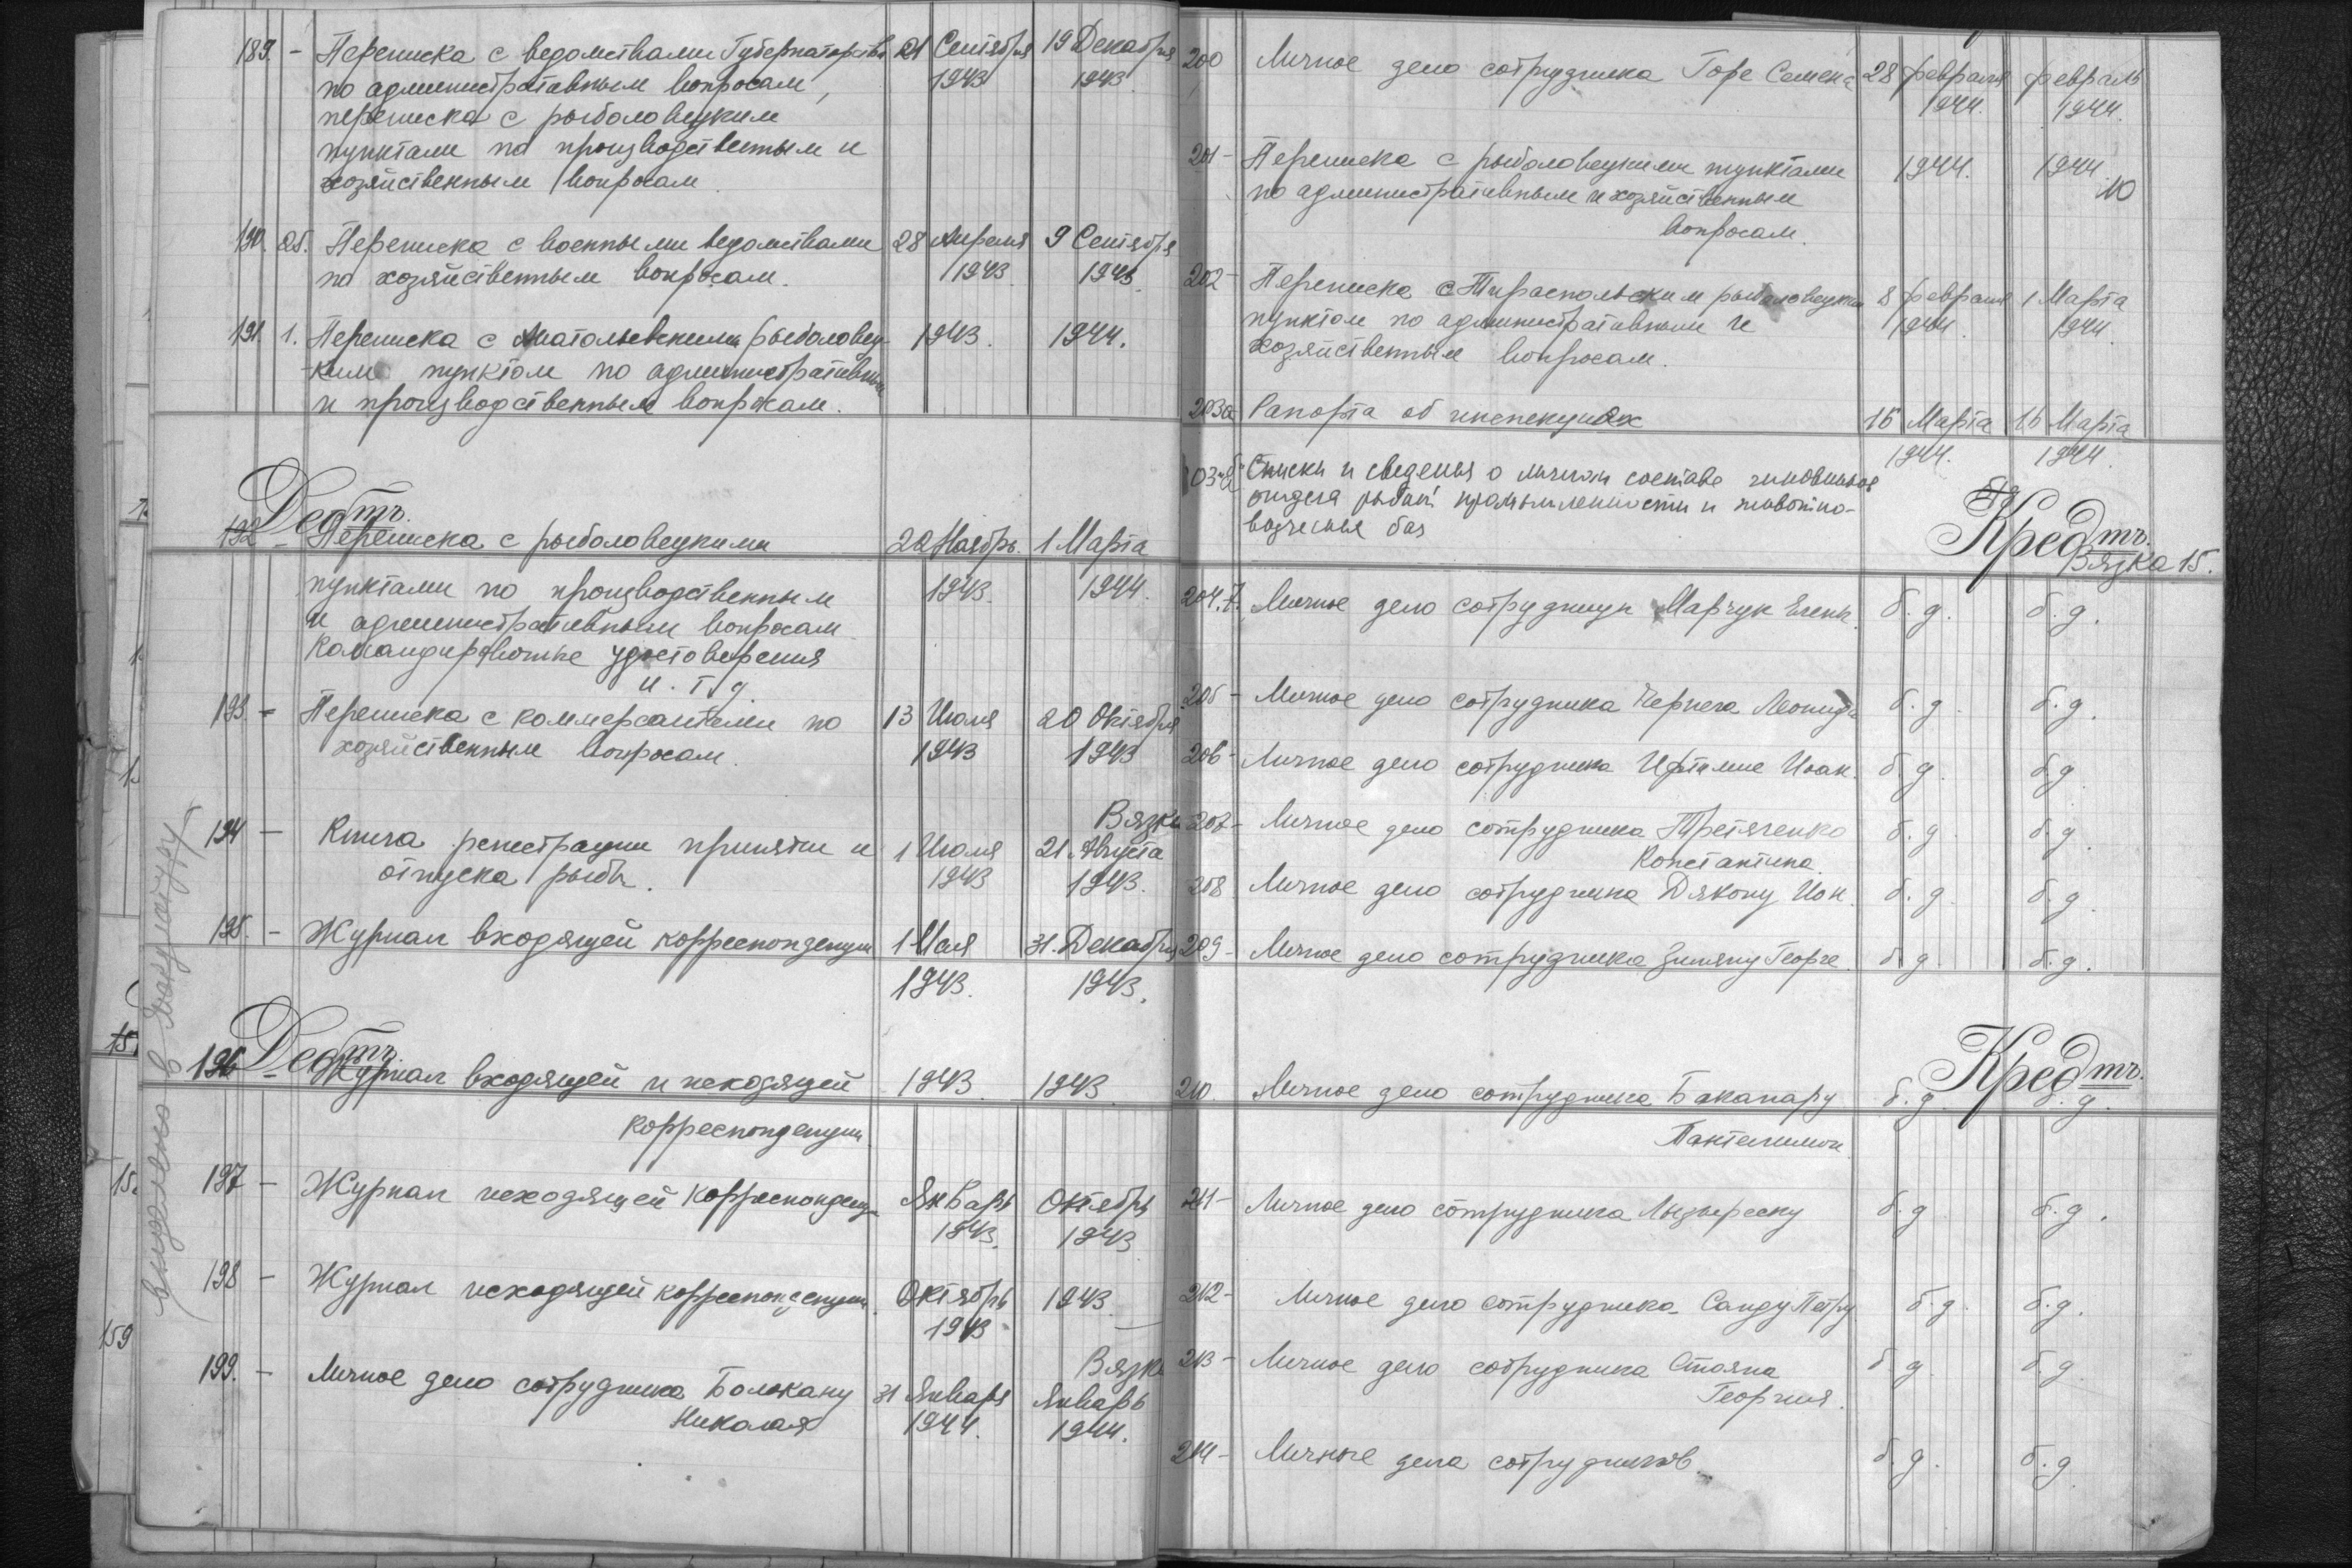 189. - Переписка с ведомствами Губернаторства 21 Сентября 19 Декабря
по административным вопросам, 1943 1943
переписка с рыболовецким
пунктами по производственным и
хозяйственным вопросам.
190. 25. Переписка с военными ведомствами 28 Апреля 9 Сентября
по хозяйственным вопросам. 1943 1943.
191. 1. Переписка с Анатольевским рыболовец- 1943. 1944.
ким пунктом по административным
и производственным вопросам.
Дебтъ.
192 - Переписка с рыболовецкими 22 Ноябрь. 1 Марта
пунктами по производственным 1943. 1944.
и административным вопросам.
Командировочные удостоверения
и. т. д.
193. - Переписка с коммерсантами по 13 Июля 20 Октября
хозяйственным вопросам. 1943 1943
Вязка
194 - Книга регистрации принятии и 1 Июля 21 Августа
отпуска рыбы. 1943 1943.
195. - Журнал входящей корреспонденции 1 Мая 31. Декабря
1943. 1943.
Дебтъ.
196 - Журнал входящей и исходящей 1943 1943.
корреспонденции.
197 - Журнал исходящей корреспонденции Январь Октябрь
1943. 1943
198 - Журнал исходящей корреспонденции. Октябрь 1943.
1943
Вязка
199. - Личное дело сотрудника Болокану 31 Января Январь
Николая 1944. 1944.
выделено в
15.
159
200 Личное дело сотрудника Горе Семена 28 февраля февраль
1944. 1944.
201 - Переписка с рыболовецкими пунктами 1944. 1944.
по административным и хозяйственным 10
вопросам.
202 - Переписка с Тираспольским рыболовецким 8 февраля 1 Марта
пунктом по административным и 1944. 1944.
хозяйственным вопросам.
203а Рапорта об инспекциях 15 Марта 16 Марта
1944. 1944.
203 Списки и сведенья о личном составе чиновников
отдела рыбной промышленности и животно-
водческих баз
Кредтъ.
Вязка 15.
204. 7. Личное дело сотрудницы Марчук Елены. б. д. б. д.
205 - Личное дело сотрудника Чернега Леонида б. д. б. д.
206 - Личное дело сотрудника Ифтимие Иоан. б. д. б. д
207 - Личное дело сотрудника Третяченко б. д б. д
Константина.
208 Личное дело сотрудника Дьякону Ион. б. д б. д.
209 - Личное дело сотрудника Зимяну Георге. б. д б. д.
Кредтъ.
210. Личное дело сотрудника Баканару б. д б. д.
Пантелимон.
211 - Личное дело сотрудника Лызыреску б. д б. д.
212 - Личное дело сотрудника Санду Петру б. д. б. д.
213 - Личное дело сотрудника Стояна б. д б. д
Георгия.
214 - Личные дела сотрудников. б. д. б. д.